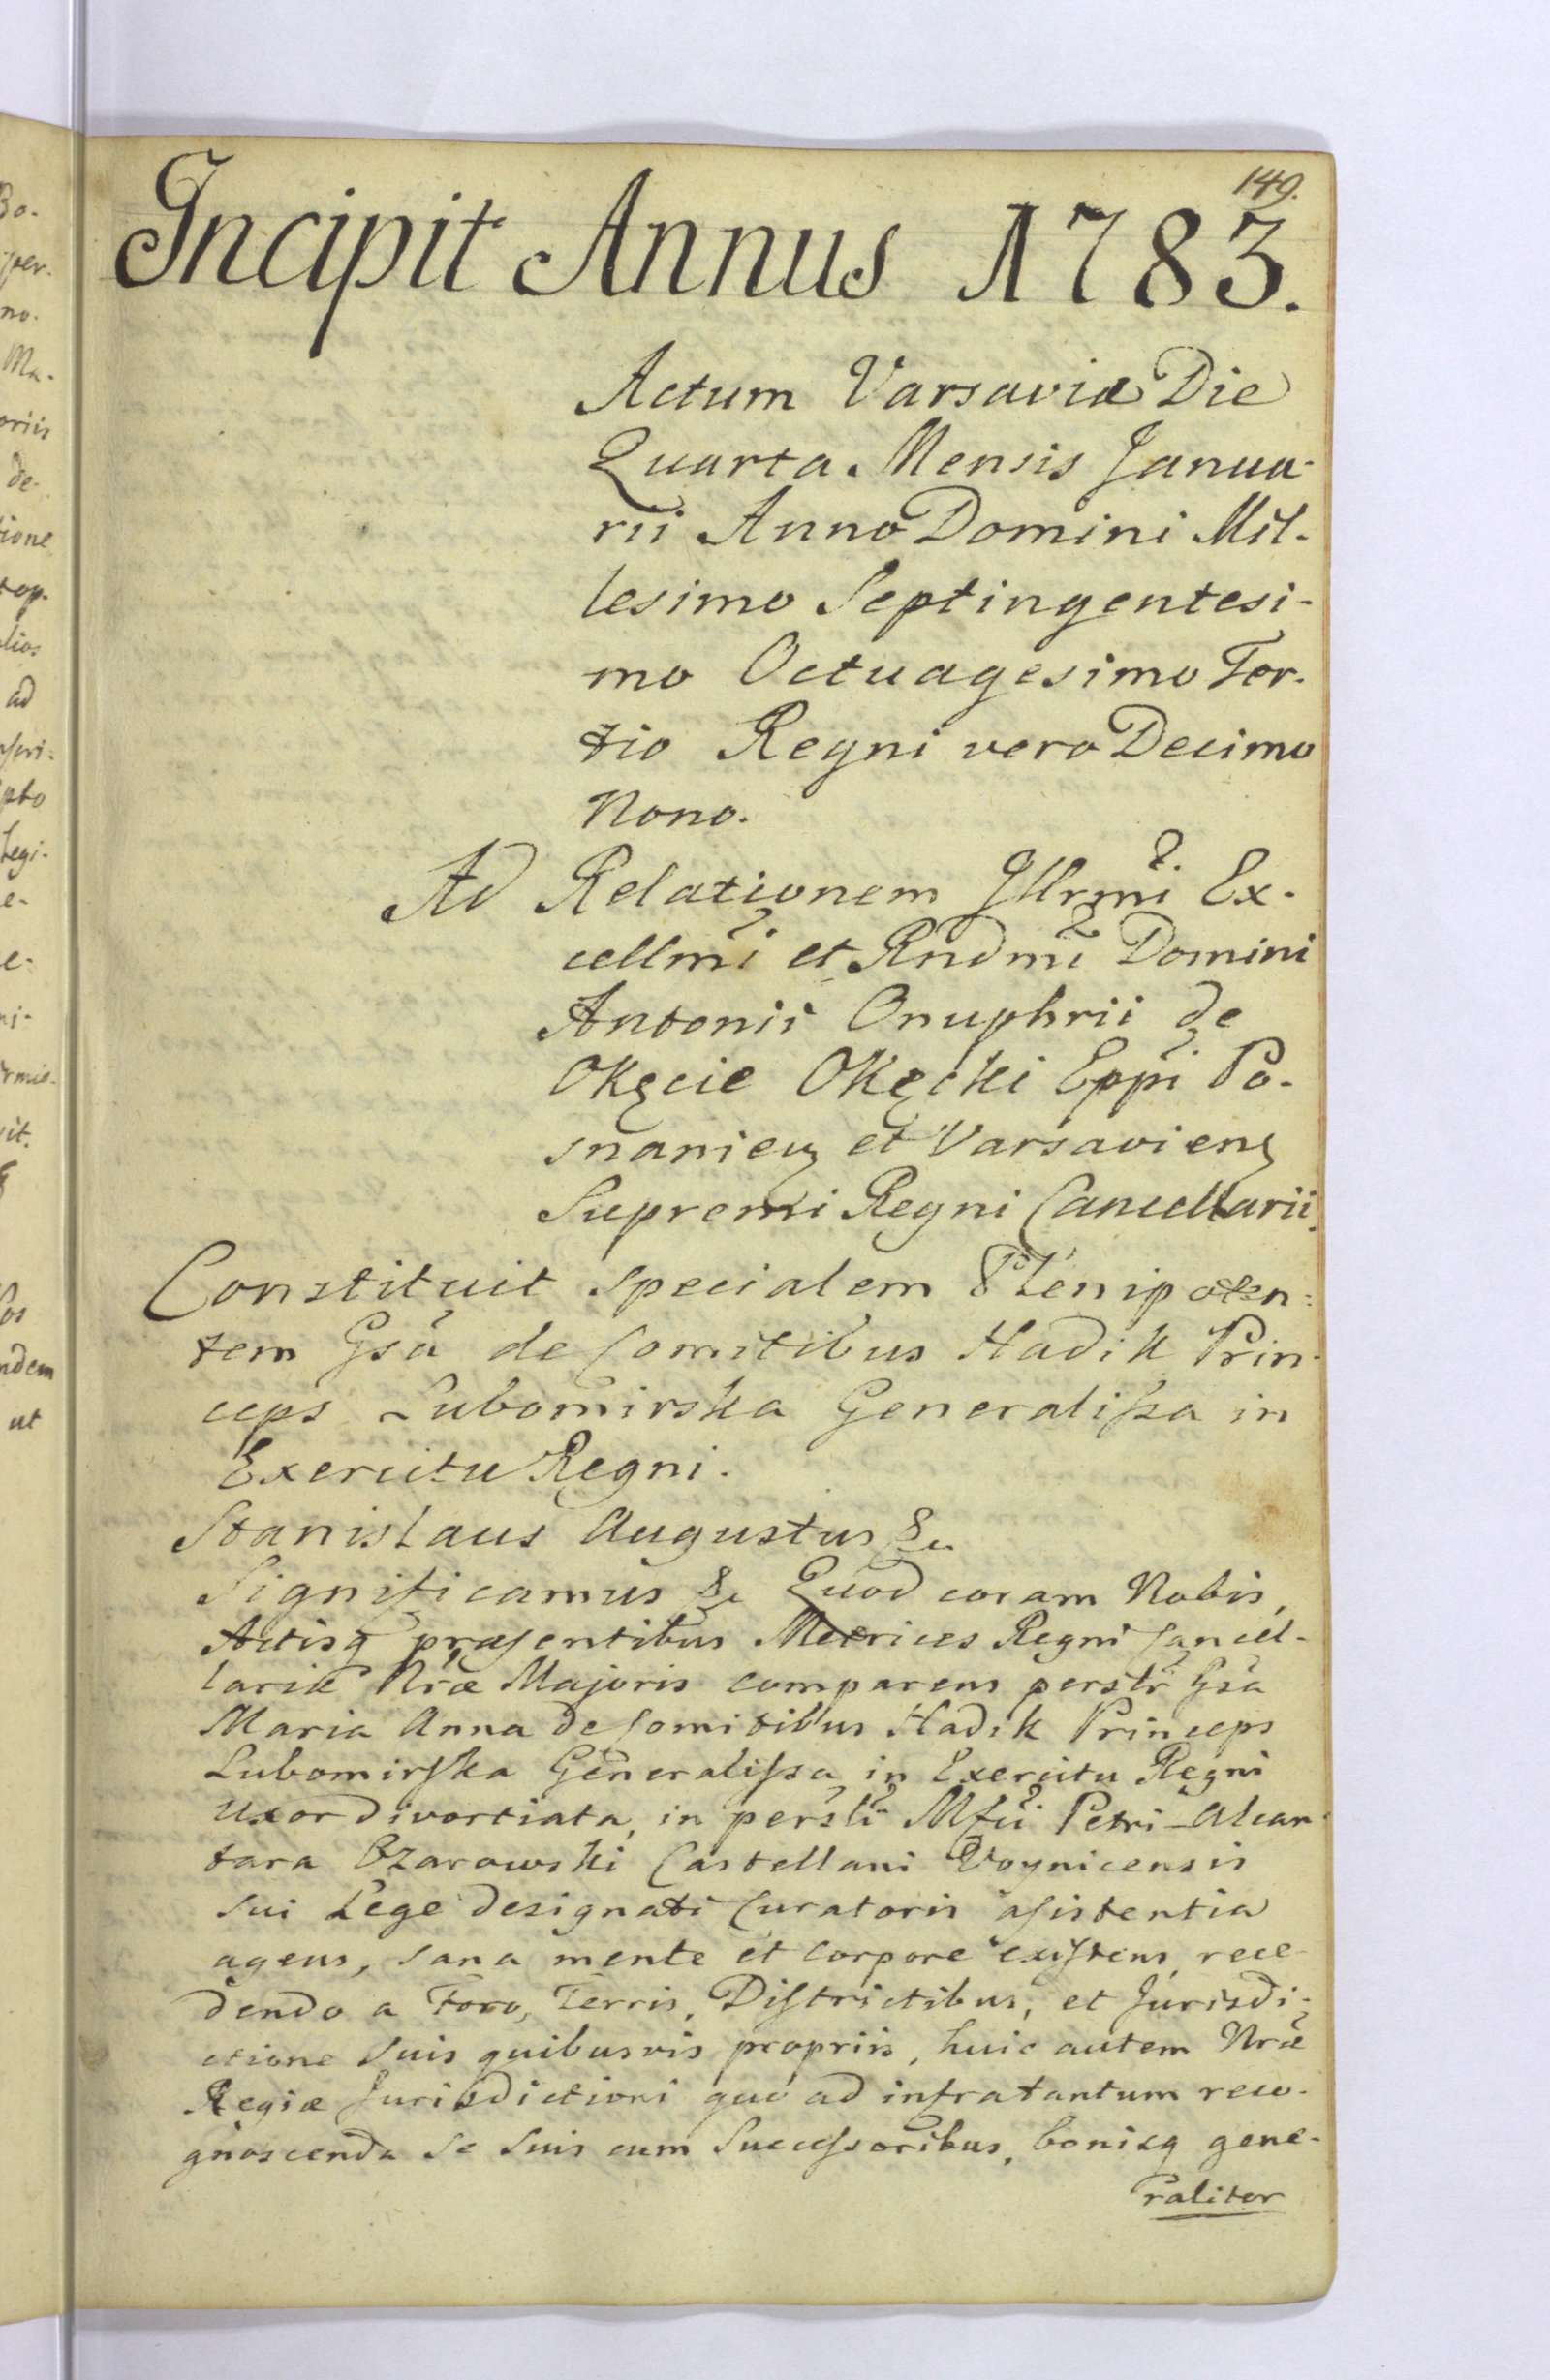 149.
Incipit Annus 1783.
Actum Varsaviæ Die
Quarta Mensis Janua-
rii Anno Domini Mil-
lesimo Septingentesi-
mo Octuagesimo Ter-
tio Regni vero Decimo
Nono.
Ad Relationem Jllrmi Ex-
cellmi et Rndmi Domini
Antonii Onuphrii de
Okęcie Okęcki Eppi Po-
snanien et Varsavien
Supremi Regni Cancellarii.
Constituit specialem Plenipoten-
tem Gsa de Comitibus Hadik Prin-
ceps Lubomirska Generalißa in
Exercitu Regni.
Stanislaus Augustus &c
Significamus &c Quod coram Nobis,
Actisq præsentibus Metrices Regni Cancel-
lariæ Nræ Majoris comparens perslr Gsa
Maria Anna de Comitibus Hadik Princeps
Lubomirska Generalißa in Exercitu Regni
Uxor divortiata, in persli Mfci Petri Alcan-
tara Ozarowski Castellani Voynicensis
sui Lege designati Curatoris asistentia
agens, sana mente et corpore existens, rece-
dendo a Foro, Terris, Districtibus, et Jurisdi-
ctione suis quibusvis propriis, huic autem Nræ
Regiæ Jurisdictioni quo ad infratantum reco-
gnoscenda se suis cum Successoribus, bonisq gene-
raliter